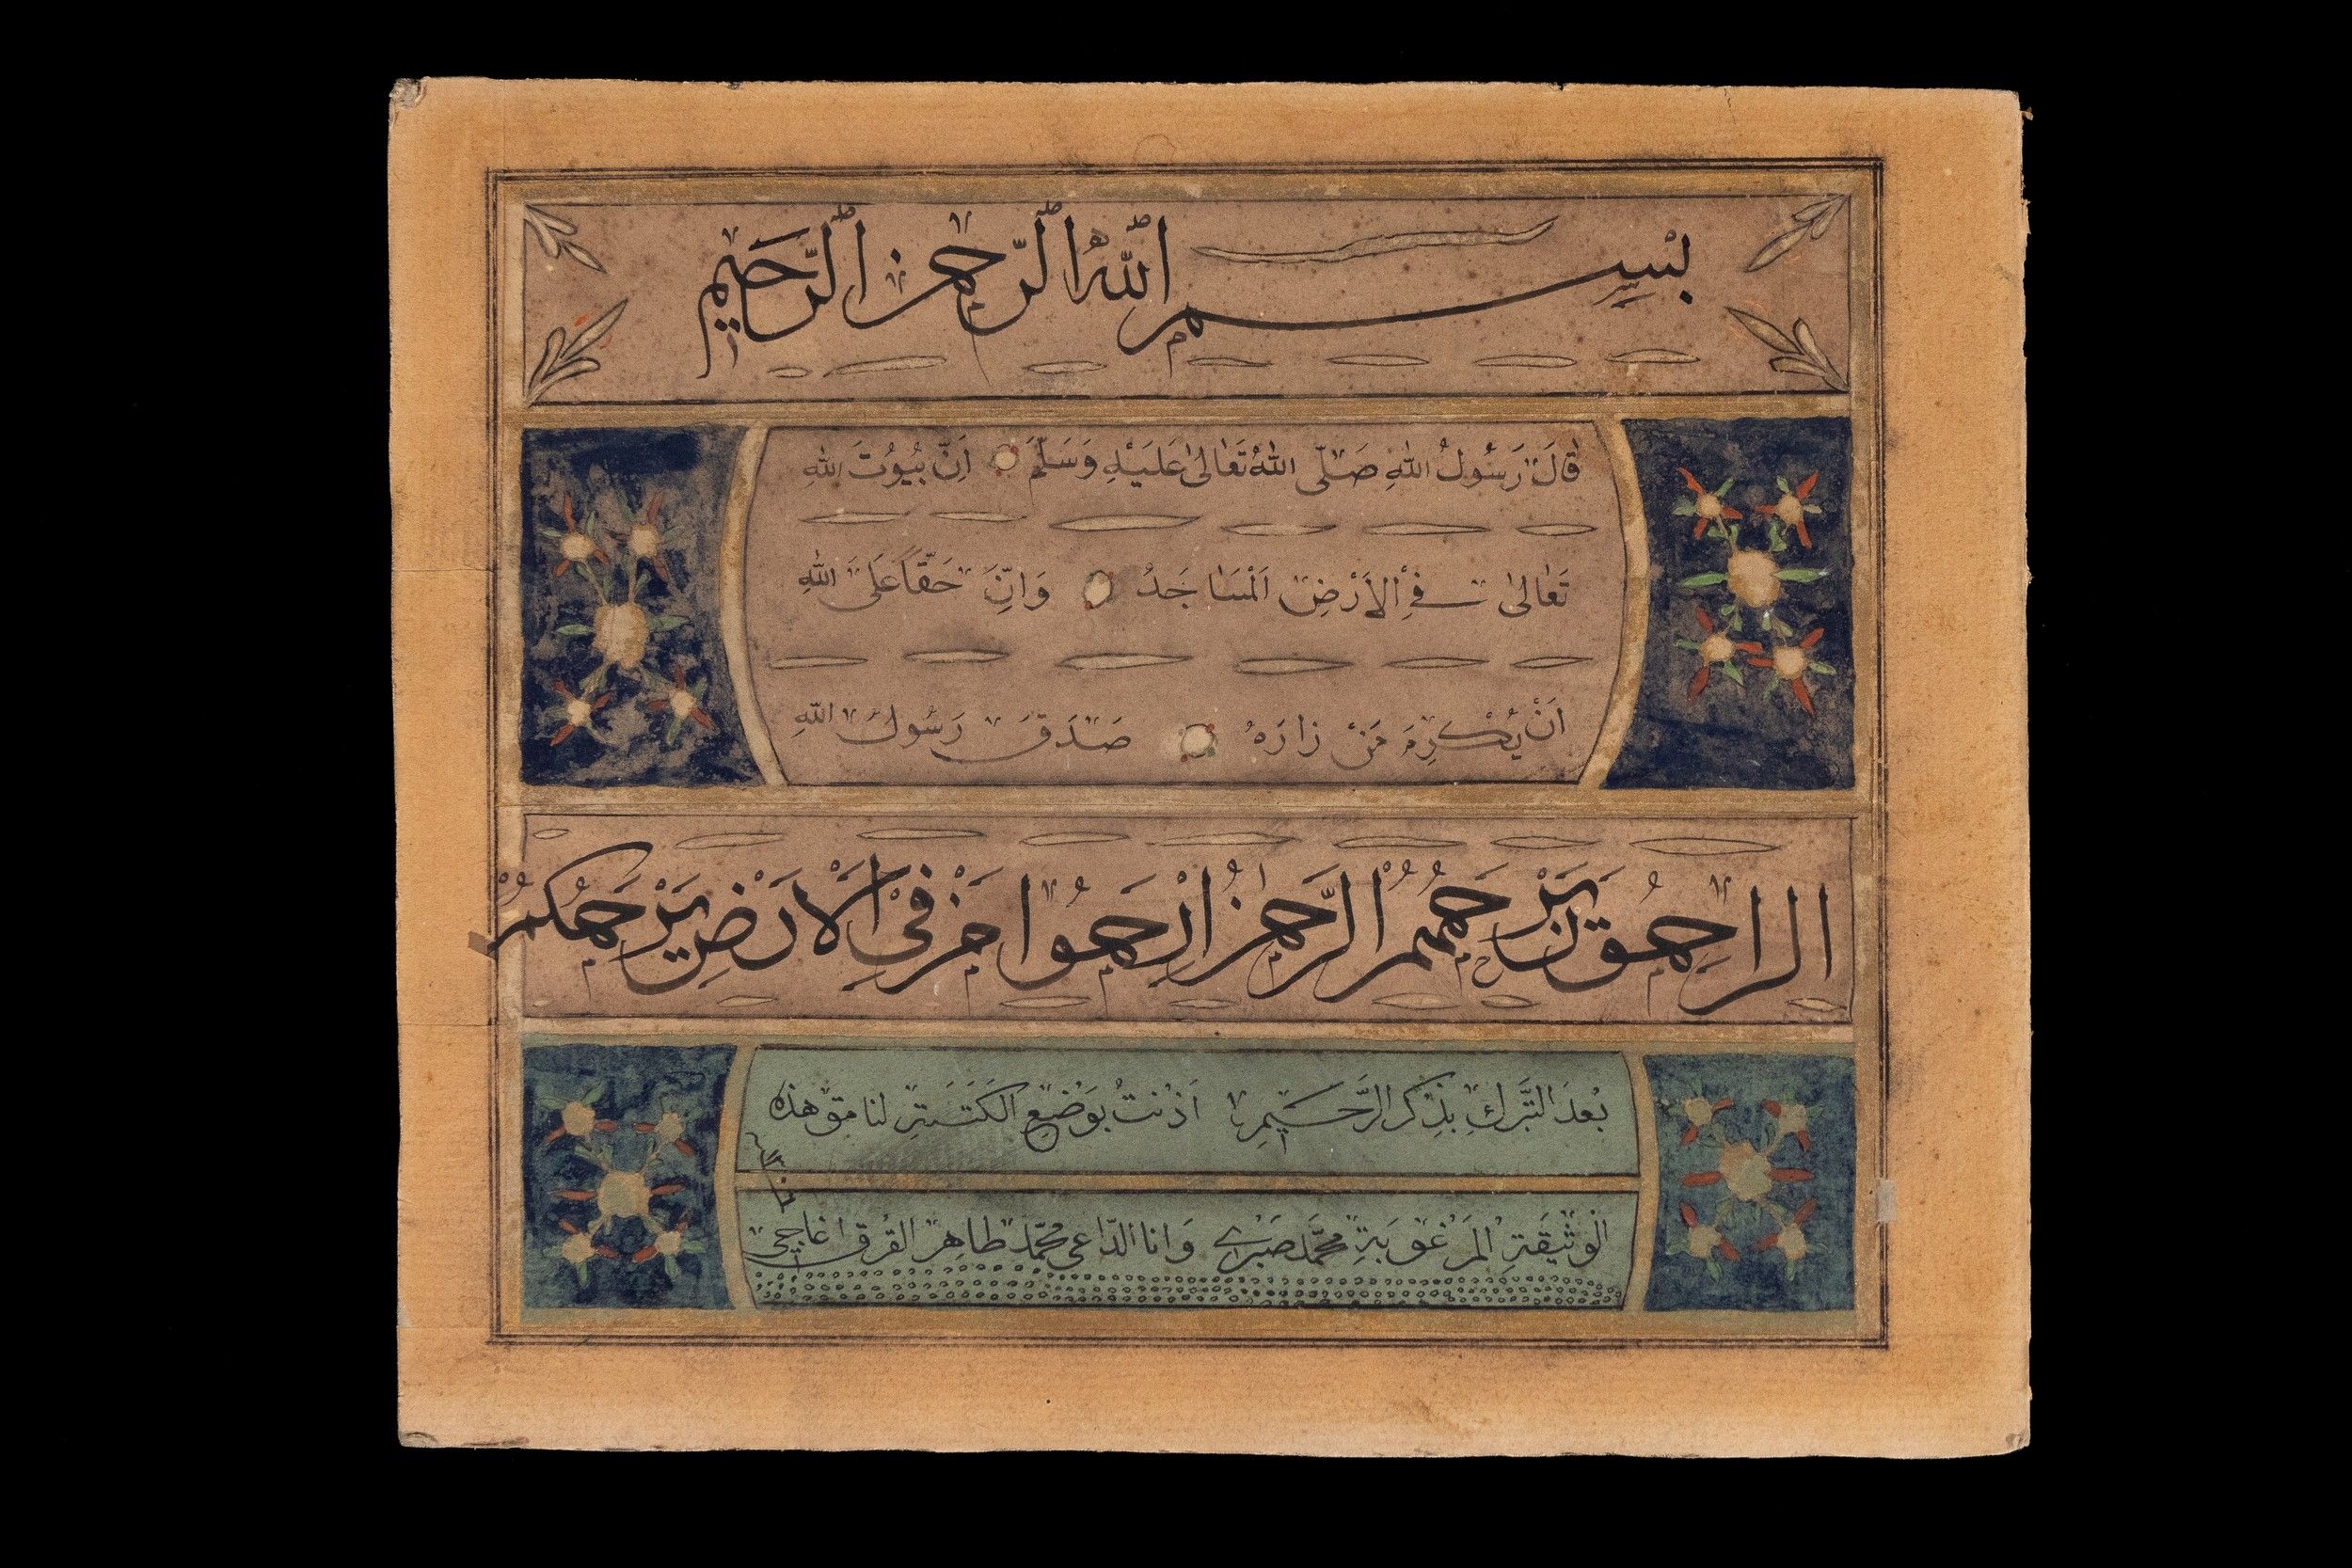 بسم الله الرحمن الرحيم
قَالَ رَسُولُ اللهِ صَلَّى اللهُ تَعَالٰى عَلَيْهِ وَسَلَّمَ اِنَّ بُيُوتَ اللهِ
تَعَالٰى فِي الْاَرْضِ اَلْمَسَاجَدُ وَاِنَّ حَقًّا عَلَى اللهِ
اَنْ يُكْرِمَ مَنْ زَارَهُ صَدَقَ رَسُولُ اللهِ
الراحمون يرحمهم الرحمن ارحموا من في الارض يرحمكم
بعد التبرك بذكر الرحيم اذنت بوضع الكتبة لنامق هذه
الوثيقة المرغوبة محمد صبري وانا الداعي محمد طاهر القرق اغاجي